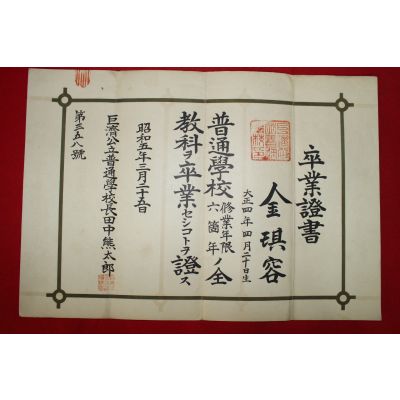 卒業證書
金琪容
大正四年四月二十日生
普通學校修業年限六箇年ノ全
教科ヲ卒業セシコトヲ證ス
昭和五年三月二十五日
巨濟公立普通學校長田中熊太郎
第三五八號